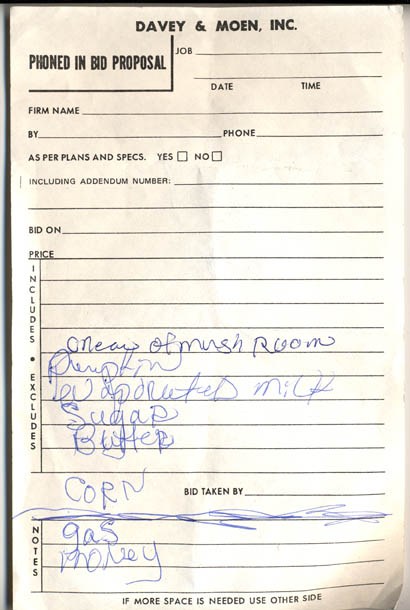 DAVEY & MOEN, INC.
PHONED IN BID PROPOSAL
JOB
DATE TIME
FIRM NAME
BY PHONE
AS PER PLANS AND SPECS. YES NO
INCLUDING ADDENDUM NUMBER:
BID ON
PRICE
INCLUDES • EXCLUDES
Cream of mush Room
Pumpkin
evaporated milk
Sugar
Butter
CORN
BID TAKEN BY
NOTES
gas
money
IF MORE SPACE IS NEEDED USE OTHER SIDE